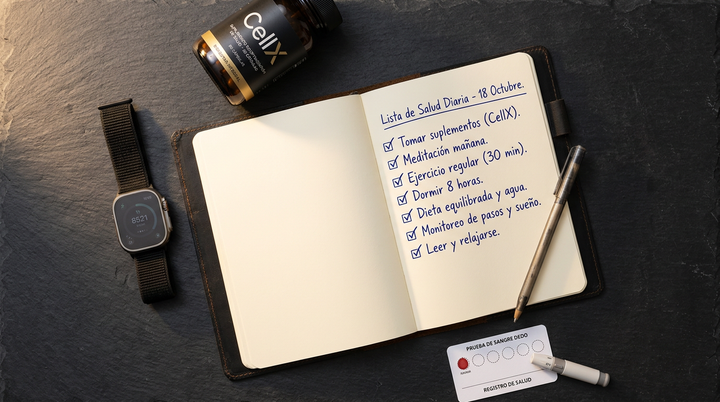 CellX
Lista de Salud Diaria - 18 Octubre.
Tomar suplementos (CellX).
Meditación mañana.
Ejercicio regular (30 min).
Dormir 8 horas.
Dieta equilibrada y agua.
Monitoreo de pasos y sueño.
Leer y relajarse.
6521
PRUEBA DE SANGRE DEDO
REGISTRO DE SALUD